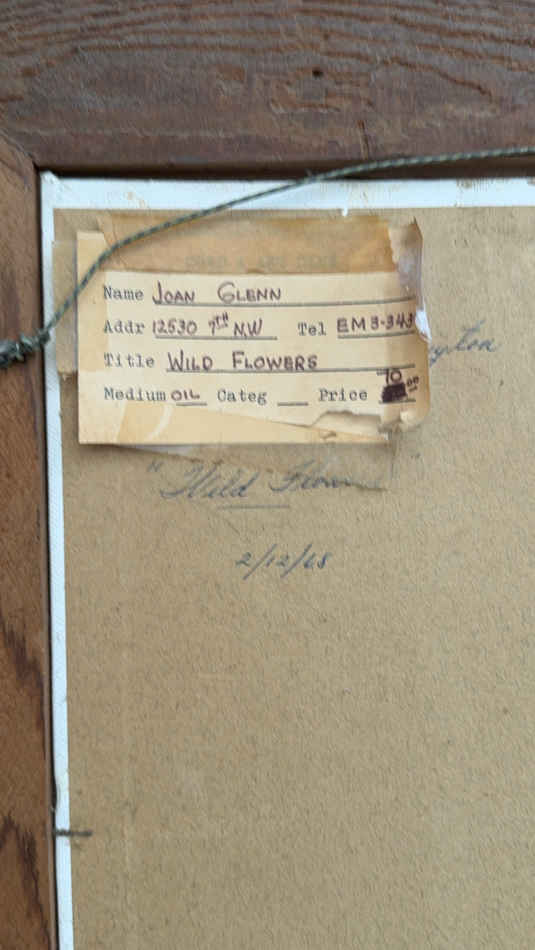 Name JOAN GLENN
Addr 12530 7TH N.W Tel EM 3-343
Title WILD FLOWERS
Medium OIL Categ ___ Price 70.00
"Wild Flowers"
2/12/68